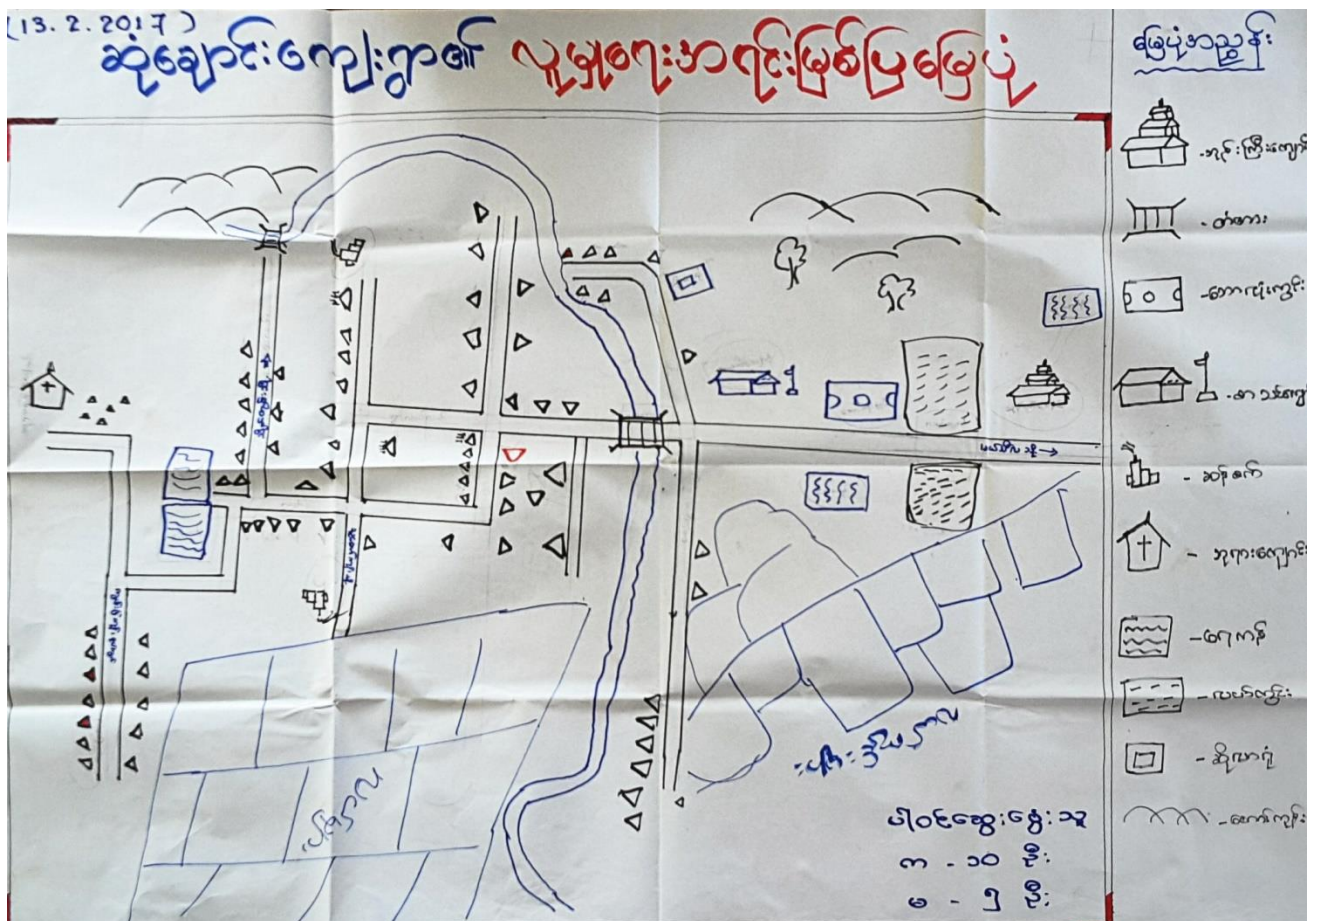 (13.2.2017)
ဆုံချောင်းကျေးရွာ၏ လူမှုရေးအရင်းမြစ်ပြမြေပုံ
မြေပုံအညွှန်း
-ဘုန်းကြီးကျောင်း
-တံတား
-ဘောလုံးကွင်း
-စာသင်ကျောင်း
- ဆန်စက်
- ဘုရားကျောင်း
-ရေကန်
-လယ်ကွင်း
-ဆိုလာရုံ
-တောင်ကုန်း
ပါဝင်ဆွေးနွေးသူ
က - ၁၀ ဦး
မ - ၅ ဦး